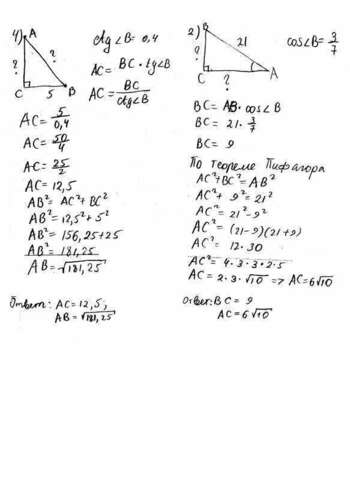 4) A
ctg∠B = 0,4
?
?
AC = BC · tg∠B
C 5 B
AC = BC/ctg∠B
AC = 5/0,4
AC = 50/4
AC = 25/2
AC = 12,5
AB² = AC² + BC²
AB² = 12,5² + 5²
AB² = 156,25 + 25
AB² = 181,25
AB = √181,25
Ответ: AC = 12,5,
AB = √181,25
2) B
cos∠B = 3/7
21
?
C ? A
BC = AB · cos∠B
BC = 21 · 3/7
BC = 9
По теореме Пифагора
AC² + BC² = AB²
AC² + 9² = 21²
AC² = 21² - 9²
AC² = (21-9)(21+9)
AC² = 12 · 30
AC² = 4 · 3 · 3 · 2 · 5
AC = 2 · 3 · √10 => AC = 6√10
Ответ: BC = 9
AC = 6√10